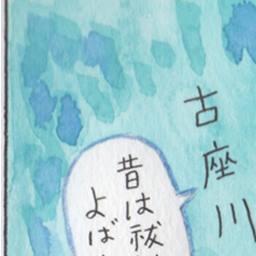 古座川
昔は祓
よば